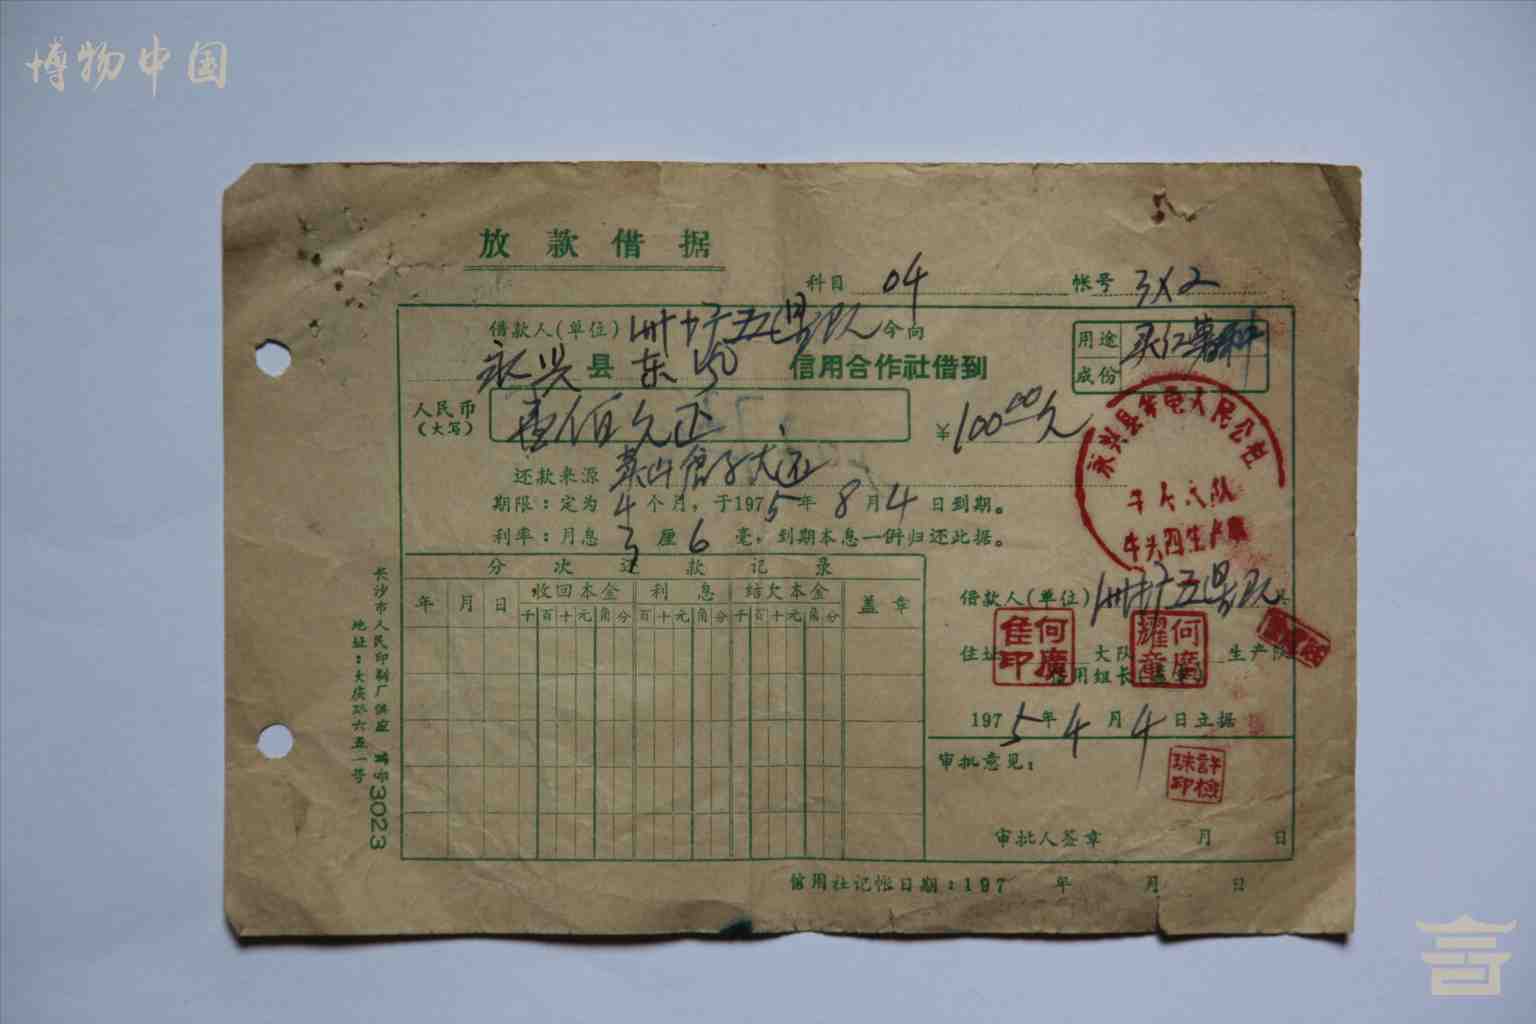 博物中国
放款借据
科目 04
帐号 3X2
借款人(单位) 卅 五 队 今向
用途 买红薯种
永兴县 东 信用合作社借到
成份
人民币(大写) 壹佰元正
¥100.00元
还款来源
期限:定为4个月,于1975年8月4日到期。
利率:月息3厘6毫,到期本息一併归还此据。
分次还款记录
年 月 日 收回本金 利息 结欠本金 盖章
千百十元角分 百十元角分 千百十元角分
永兴县 人民公社
借款人(单位) 卅 五 队
何广隹印
何广耀章
住址 大队 生产队
信用组长
1975年4月4日立据
审批意见:
許檢珠印
审批人签章 月 日
信用社记帐日期:197 年 月 日
长沙市人民印刷厂供应 3023
地址: 六五一号